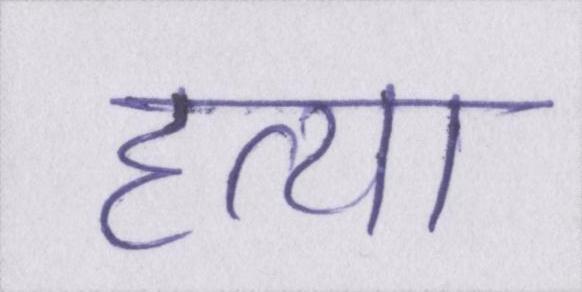 हत्या